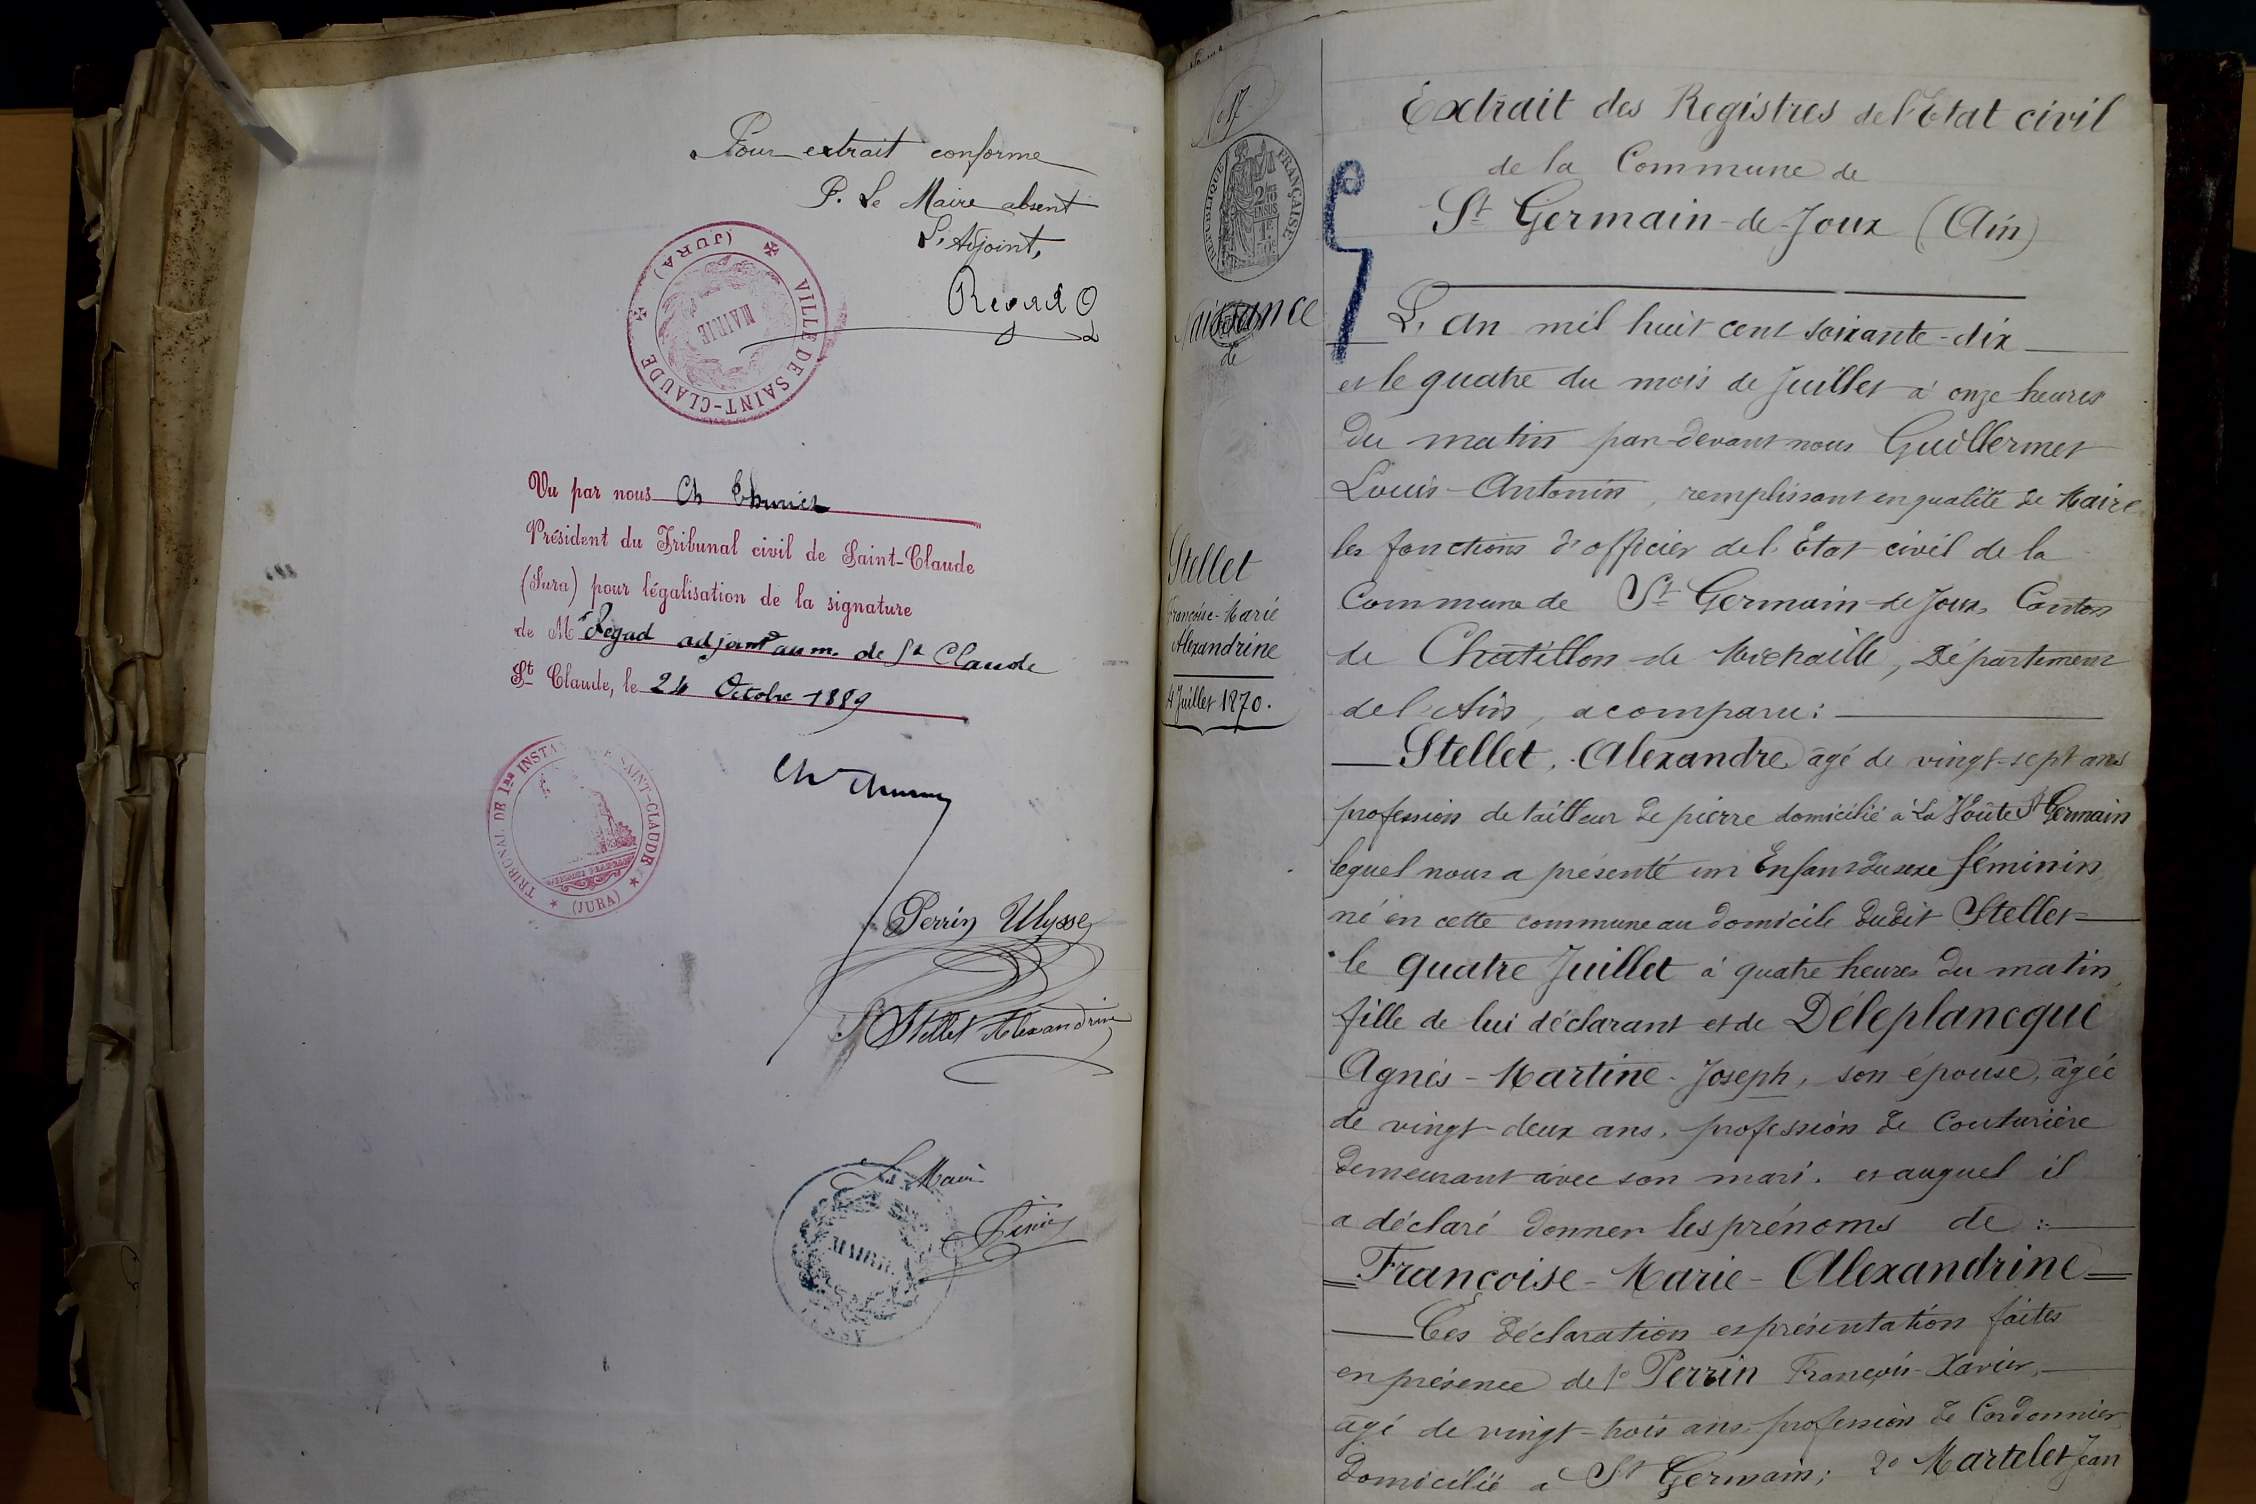 Pour extrait conforme
P. Le Maire absent
L'Adjoint,
Regad
VILLE DE SAINT-CLAUDE
(JURA)
MAIRIE
Vu par nous Ch
Président du Tribunal civil de Saint-Claude
(Jura) pour légalisation de la signature
de Mr Regad adjoint au m. de St Claude
St Claude, le 24 Octobre 1889
TRIBUNAL DE 1re INSTA SAINT-CLAUDE
(JURA)
Perrin Ulysse
Stellet Alexandrine
Le Maire
MAIRIE
RÉPUBLIQUE FRANÇAISE
2/10 EN SUS
Naissance
de
Stellet
Françoise-Marie
Alexandrine
4 Juillet 1870.
Extrait des Registres de l'Etat civil
de la Commune de
St Germain-de-Joux (Ain)
L'an mil huit cent soixante-dix
et le quatre du mois de Juillet à onze heures
du matin par-devant nous Guillermet
Louis-Antonin, remplissant en qualité de Maire
les fonctions d'officier de l'Etat civil de la
Commune de St Germain-de-Joux, Canton
de Chatillon-de-Michaille, Département
de l'Ain, a comparu:
Stellet, Alexandre âgé de vingt-sept ans
profession de tailleur de pierre domicilié à La Voûte St Germain
lequel nous a présenté un Enfant du sexe féminin,
né en cette commune au domicile dudit Stellet
le quatre Juillet à quatre heures du matin,
fille de lui déclarant et de Déleplancque
Agnès-Martine-Joseph, son épouse, âgée
de vingt-deux ans, profession de Couturière
demeurant avec son mari. et auquel il
a déclaré donner les prénoms de:
Françoise-Marie-Alexandrine
Ces déclaration et présentation faites
en présence de 1° Perrin François-Xavier,
âgé de vingt-trois ans profession de Cordonnier
domicilié à St Germain; 2° Martelet Jean